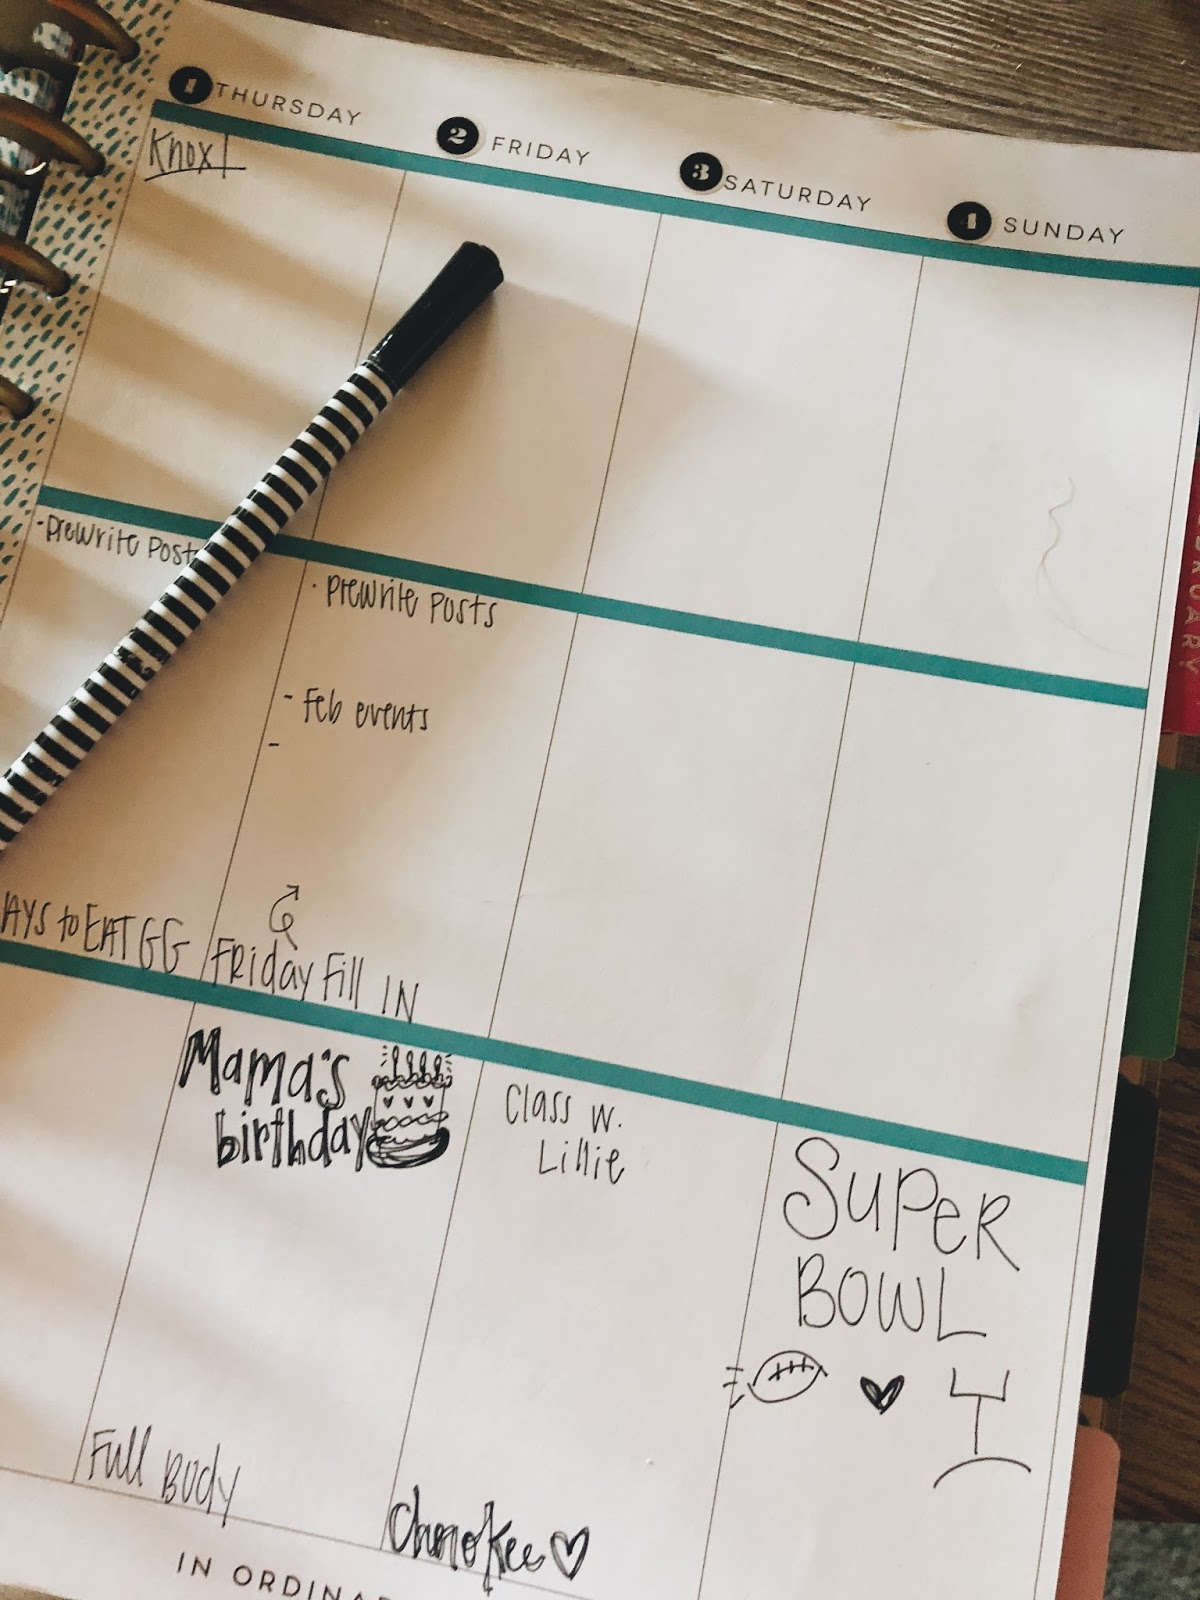 1 THURSDAY
2 FRIDAY
3 SATURDAY
4 SUNDAY
Knox
- Prewrite Post
· Prewrite Posts
- Feb events
-
AYS to EAT GG
Friday Fill IN
Mama's
birthday
Class w.
Lillie
SUPER
BOWL
Full Body
Cherokee ♡
IN ORDINA
RUARY